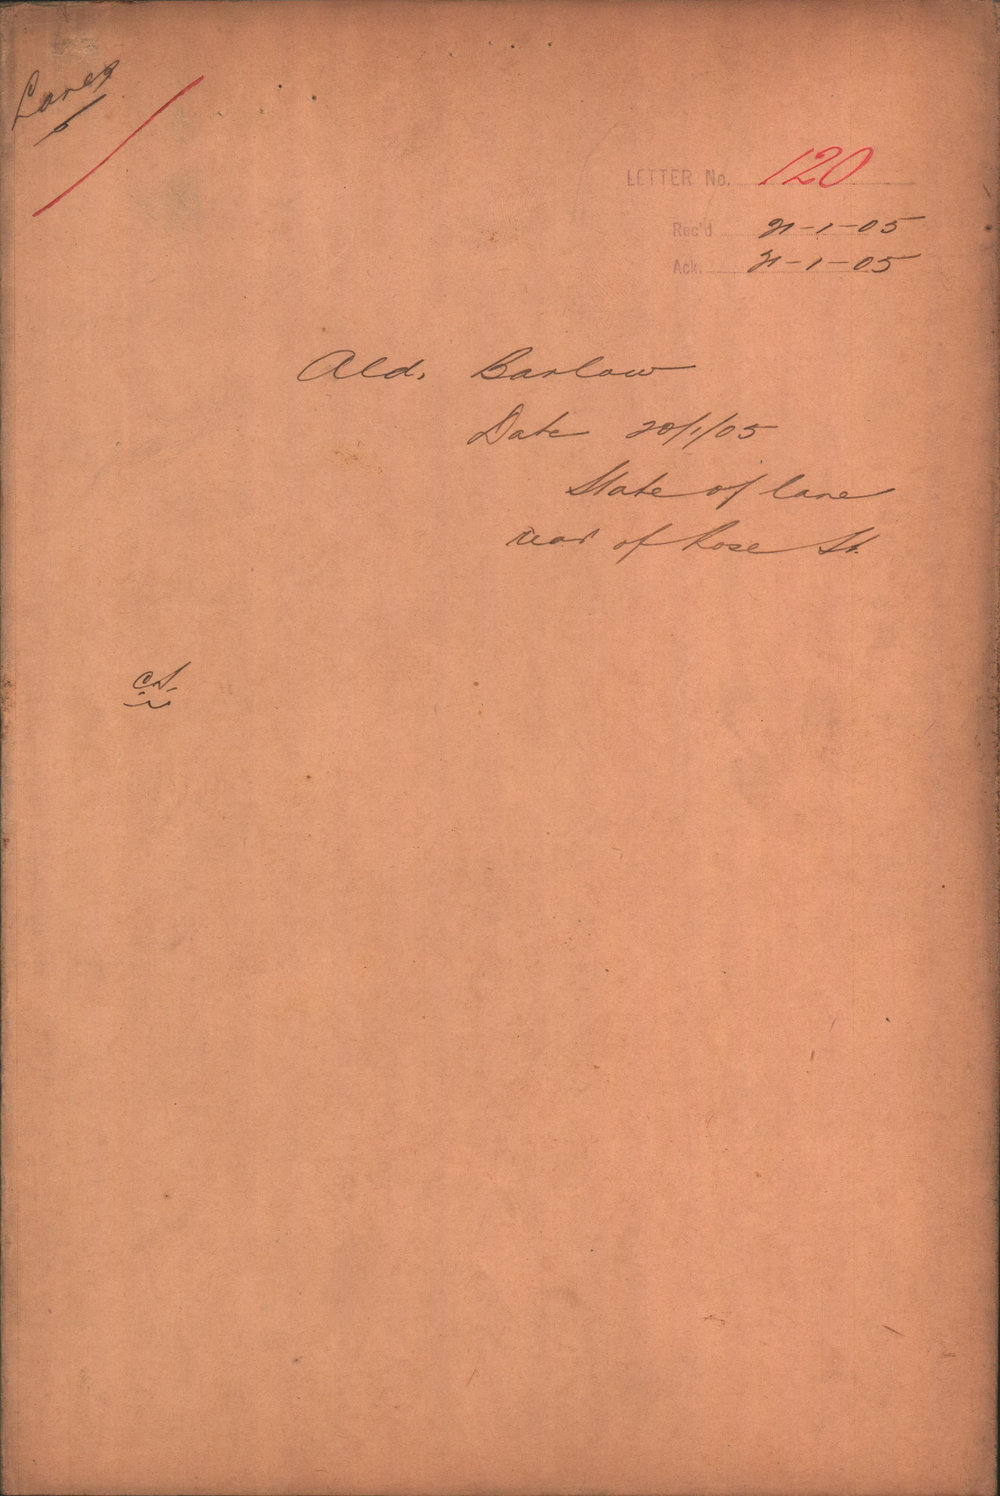 Lanes
LETTER No. 120
Rec'd 21-1-05
Ack. 21-1-05
Ald. Barlow
Date 20/1/05
State of lane
rear of Rose St.
C.S.